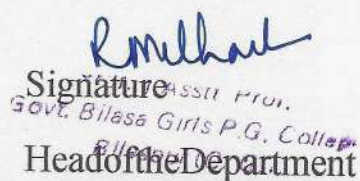 Signature
Asstt Prof.
Govt. Bilasa Girls P.G. College
HeadoftheDepartment